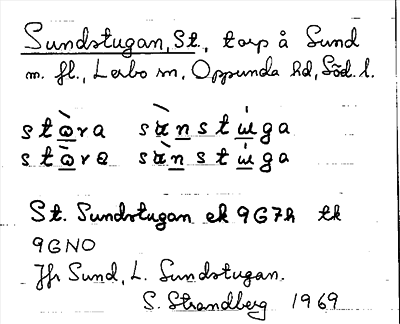 Sundstugan, St., torp å Sund
m. fl., Lerbo sn, Oppunda hd, Söd. l.
stòra sànstúga
stòre sànstúga
St. Sundstugan ek 9G7h tk
9GNO
Jfr Sund, L. Sundstugan.
S. Strandberg 1969